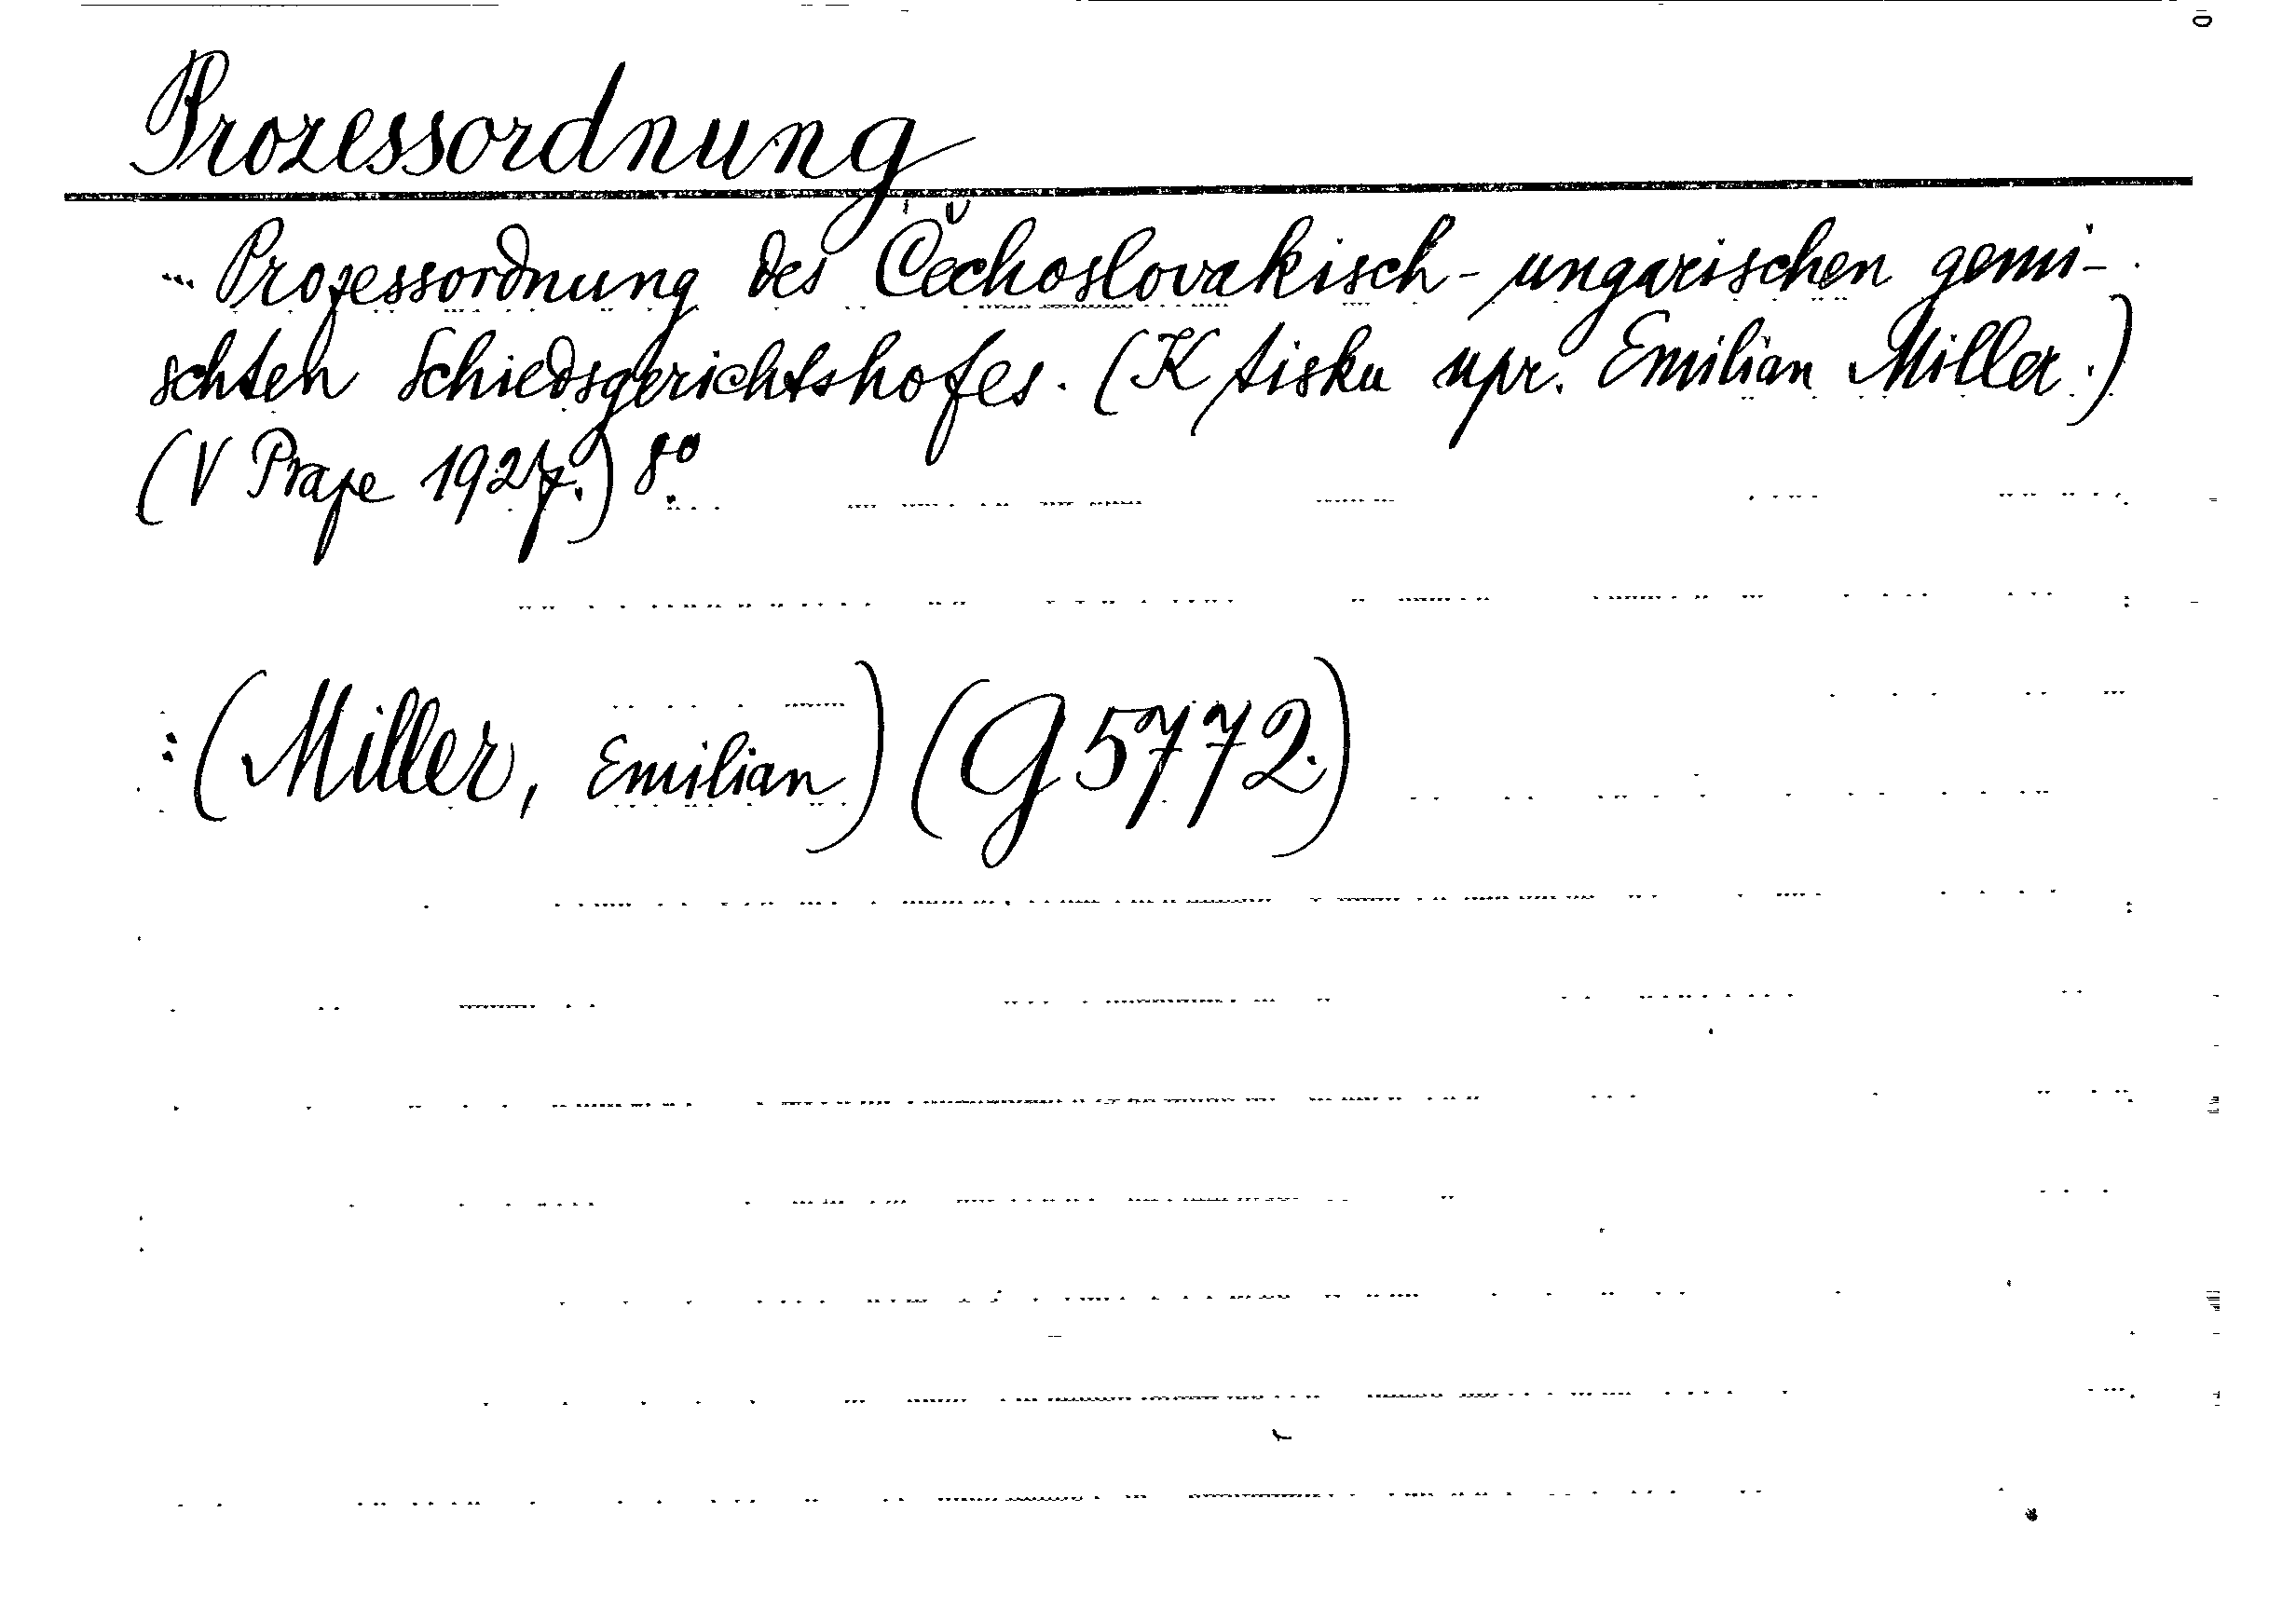 Prozessordnung
... Prozessordnung des Čechoslovakisch-ungarischen gemi-
schten Schiedsgerichtshofes. (K tisku upr. Emilian Miller.)
(V Praze 1927.) 8°.
(Miller, Emilian) (G 5772.)